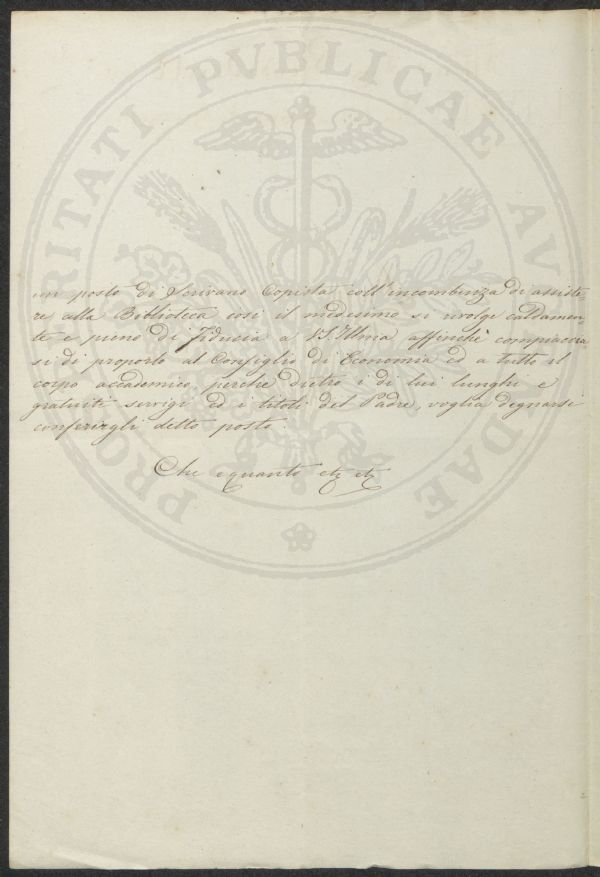 PROSPERITATI PVBLICAE AVGENDAE
un posto di Scrivano Copista coll'incombenza di assiste-
re alla Biblioteca così il medesimo si rivolge caldamen-
te e pieno di fiducia a V.S. Illma affinchè compiacria
si di proporlo al Consiglio di Economia ed a tutto il
corpo accademico, perche dietro i di lui lunghi e
gratuiti servigi ed i titoli del Padre, voglia degnarsi
conferirgli detto posto.
Che e quanto etc etc